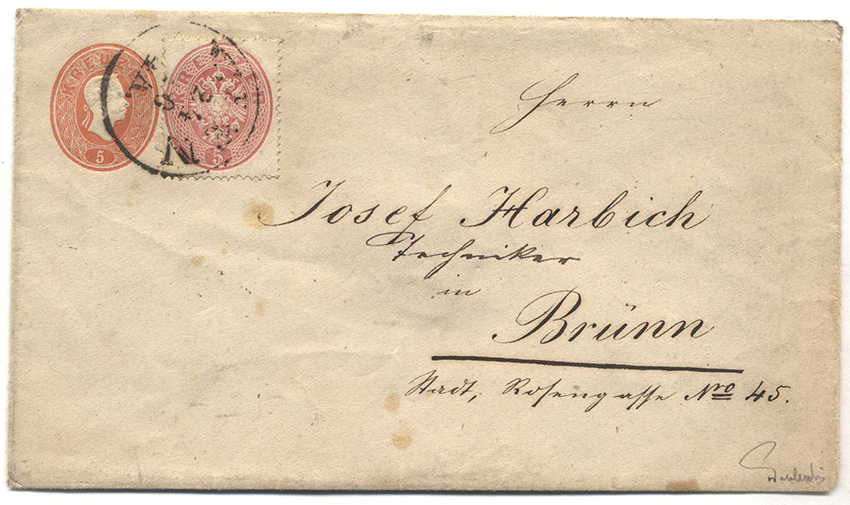 KREU
5
5
N
Herrn
Josef Harbich
Techniker
in
Brünn
Stadt, Rosengasse Nro 45.